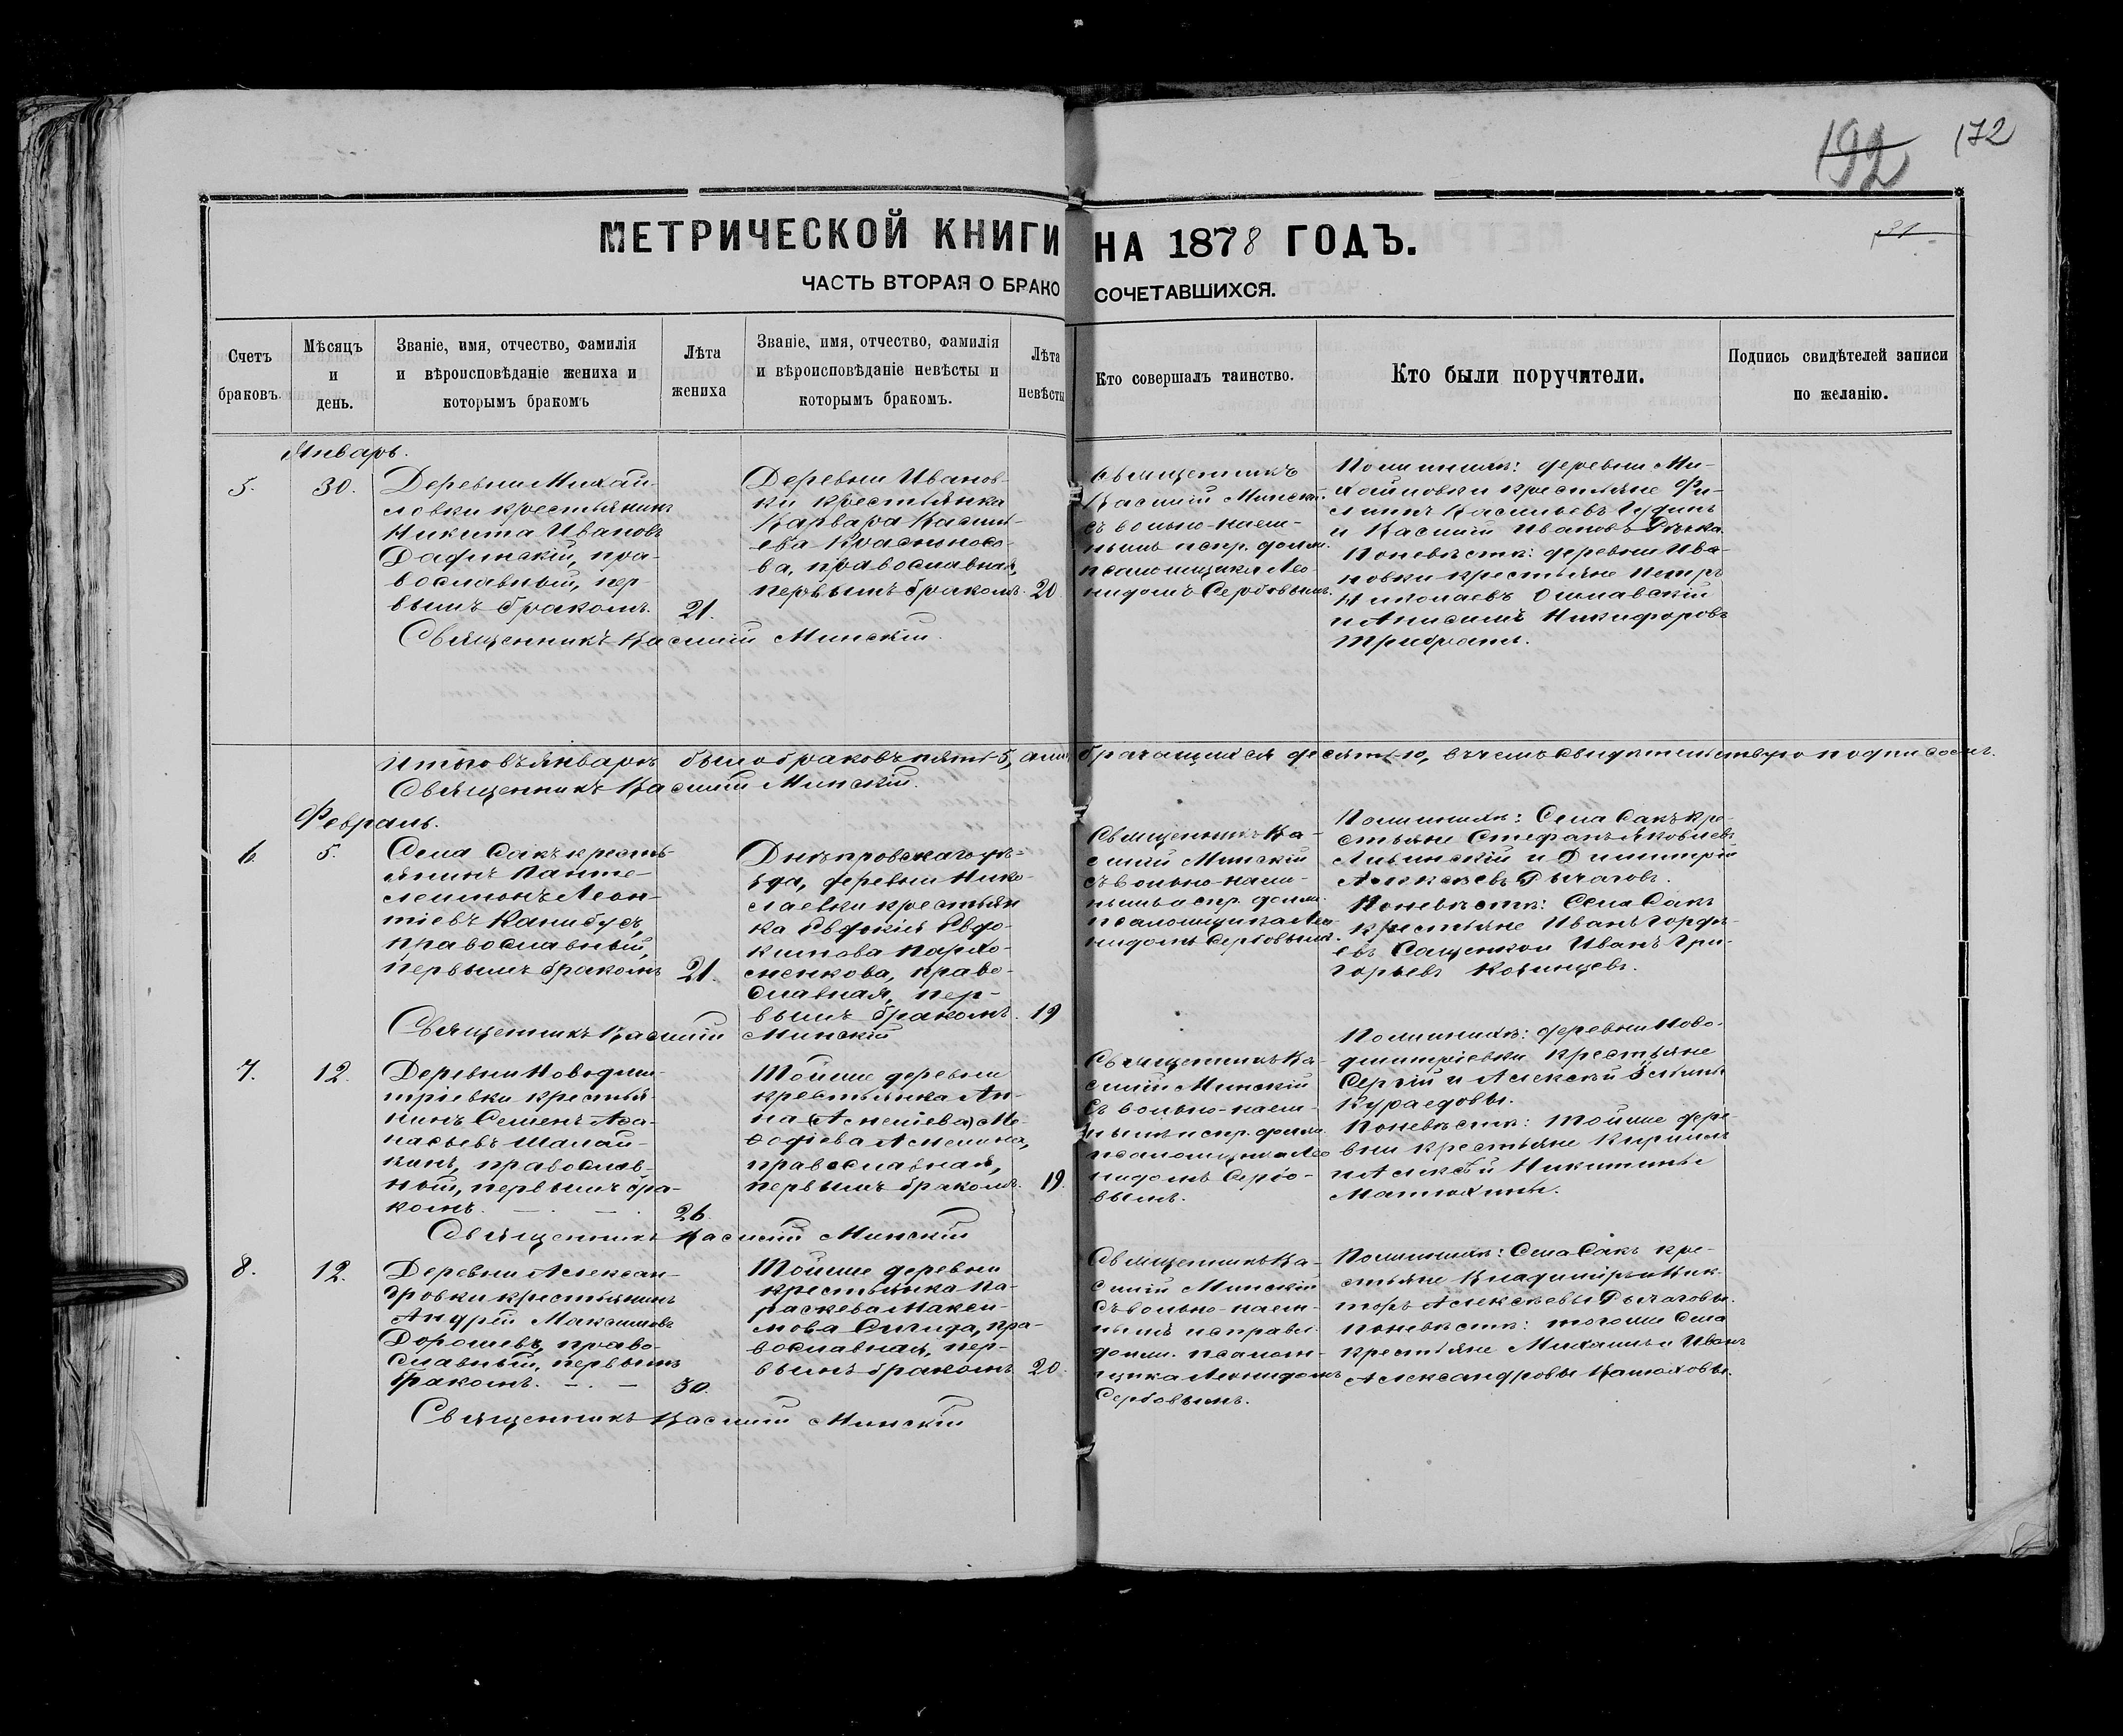 192 172
31
МЕТРИЧЕСКОЙ КНИГИ НА 1878 ГОДЪ.
ЧАСТЬ ВТОРАЯ О БРАКОСОЧЕТАВШИХСЯ.
Счетъ браковъ.
Мѣсяцъ и день.
Званіе, имя, отчество, фамилія
и вѣроисповѣданіе жениха и
которымъ бракомъ
Лѣта жениха
Званіе, имя, отчество, фамилія
и вѣроисповѣданіе невѣсты и
которымъ бракомъ.
Лѣта невѣсты
Кто совершалъ таинство.
Кто были поручители.
Подпись свидѣтелей записи
по желанію.
Январь.
5.
30.
Деревни Михай-
ловки крестьянинъ
Никита Ивановъ
Дафинскій, пра-
вославный, пер-
вымъ бракомъ.
21.
Деревни Иванов-
ки крестьянка
Варвара Василь-
ева Красноносо-
ва, православная,
первымъ бракомъ.
20.
Священникъ
Василій Минскій
съ вольно-наем-
нымъ испр. должн.
псаломщика Лео-
нидомъ Сербовымъ.
По женихѣ: деревни Ми-
хайловки крестьяне Фи-
липпъ Васильевъ
и Василій Ивановъ
По невѣстѣ: деревни Ива-
новки крестьяне Петръ
Николаевъ
и Анисимъ Никифоровъ
Трибратъ.
Священникъ Василій Минскій.
Итого въ Январѣ было браковъ пять 5, а лицъ брачащихся десять 10, въ чемъ свидѣтельствую подписомъ.
Священникъ Василій Минскій.
Февраль.
6.
5.
Села Сакъ кресть-
янинъ Панте-
леимонъ Леон-
тіевъ Канибусъ,
православный,
первымъ бракомъ
21.
Днѣпровскаго уѣ-
зда, деревни Нико-
лаевки крестьян
ка Евдокія Евдо-
кимова Пархо-
менкова, право-
славная, пер-
вымъ бракомъ.
19
Священникъ Ва-
силій Минскій
съ вольно-наем-
нымъ испр. должн.
псаломщика Лео-
нидомъ Сербовымъ.
По женихѣ: Села Сакъ кре-
стьяне Стефанъ Яковлевъ
Ливинскій и Димитрій
Алексѣевъ Рычаговъ.
По невѣстѣ: Села Сакъ
крестьяне Иванъ Гордѣ-
евъ Сащенко и Иванъ Гри-
горьевъ Ковинцевъ.
Священникъ Василій Минскій
7.
12.
Деревни Новодми-
тріевки крестья-
нинъ Семенъ Афа-
насьевъ Шалай-
кинъ, православ-
ный, первымъ бра-
комъ.
26.
Тойже деревни
крестьянка Ан-
на
Меѳодіева
православная,
первымъ бракомъ.
19.
Священникъ Ва-
силій Минскій
съ вольно-наем-
нымъ испр. должн.
псаломщика Лео
нидомъ Сербо-
вымъ.
По женихѣ: деревни Ново-
дмитріевки крестьяне
Сергій и Алексѣй
Кураедовы.
По невѣстѣ: тойже дере-
вни крестьяне Кириллъ
и Алексѣй Никитины
Матюхины.
Священникъ Василій Минскій
8.
12.
Деревни Алексан-
дровки крестьянинъ
Андрей Максимовъ
Дорошевъ, право-
славный, первымъ
бракомъ.
30.
Тойже деревни
крестьянка Па-
раскева Макси-
мова Сигида, пра-
вославная, пер-
вымъ бракомъ
20.
Священникъ Ва-
силій Минскій
съ вольно-наем-
нымъ исправл.
должн. псалом-
щика Леонидомъ
Сербовымъ.
По женихѣ: Села Сакъ кре-
стьяне Владиміръ и Вик-
торъ Алексѣевы Рычаговы.
По невѣстѣ: тогоже Села
крестьяне Михаилъ и Иванъ
Александровы
Священникъ Василій Минскій